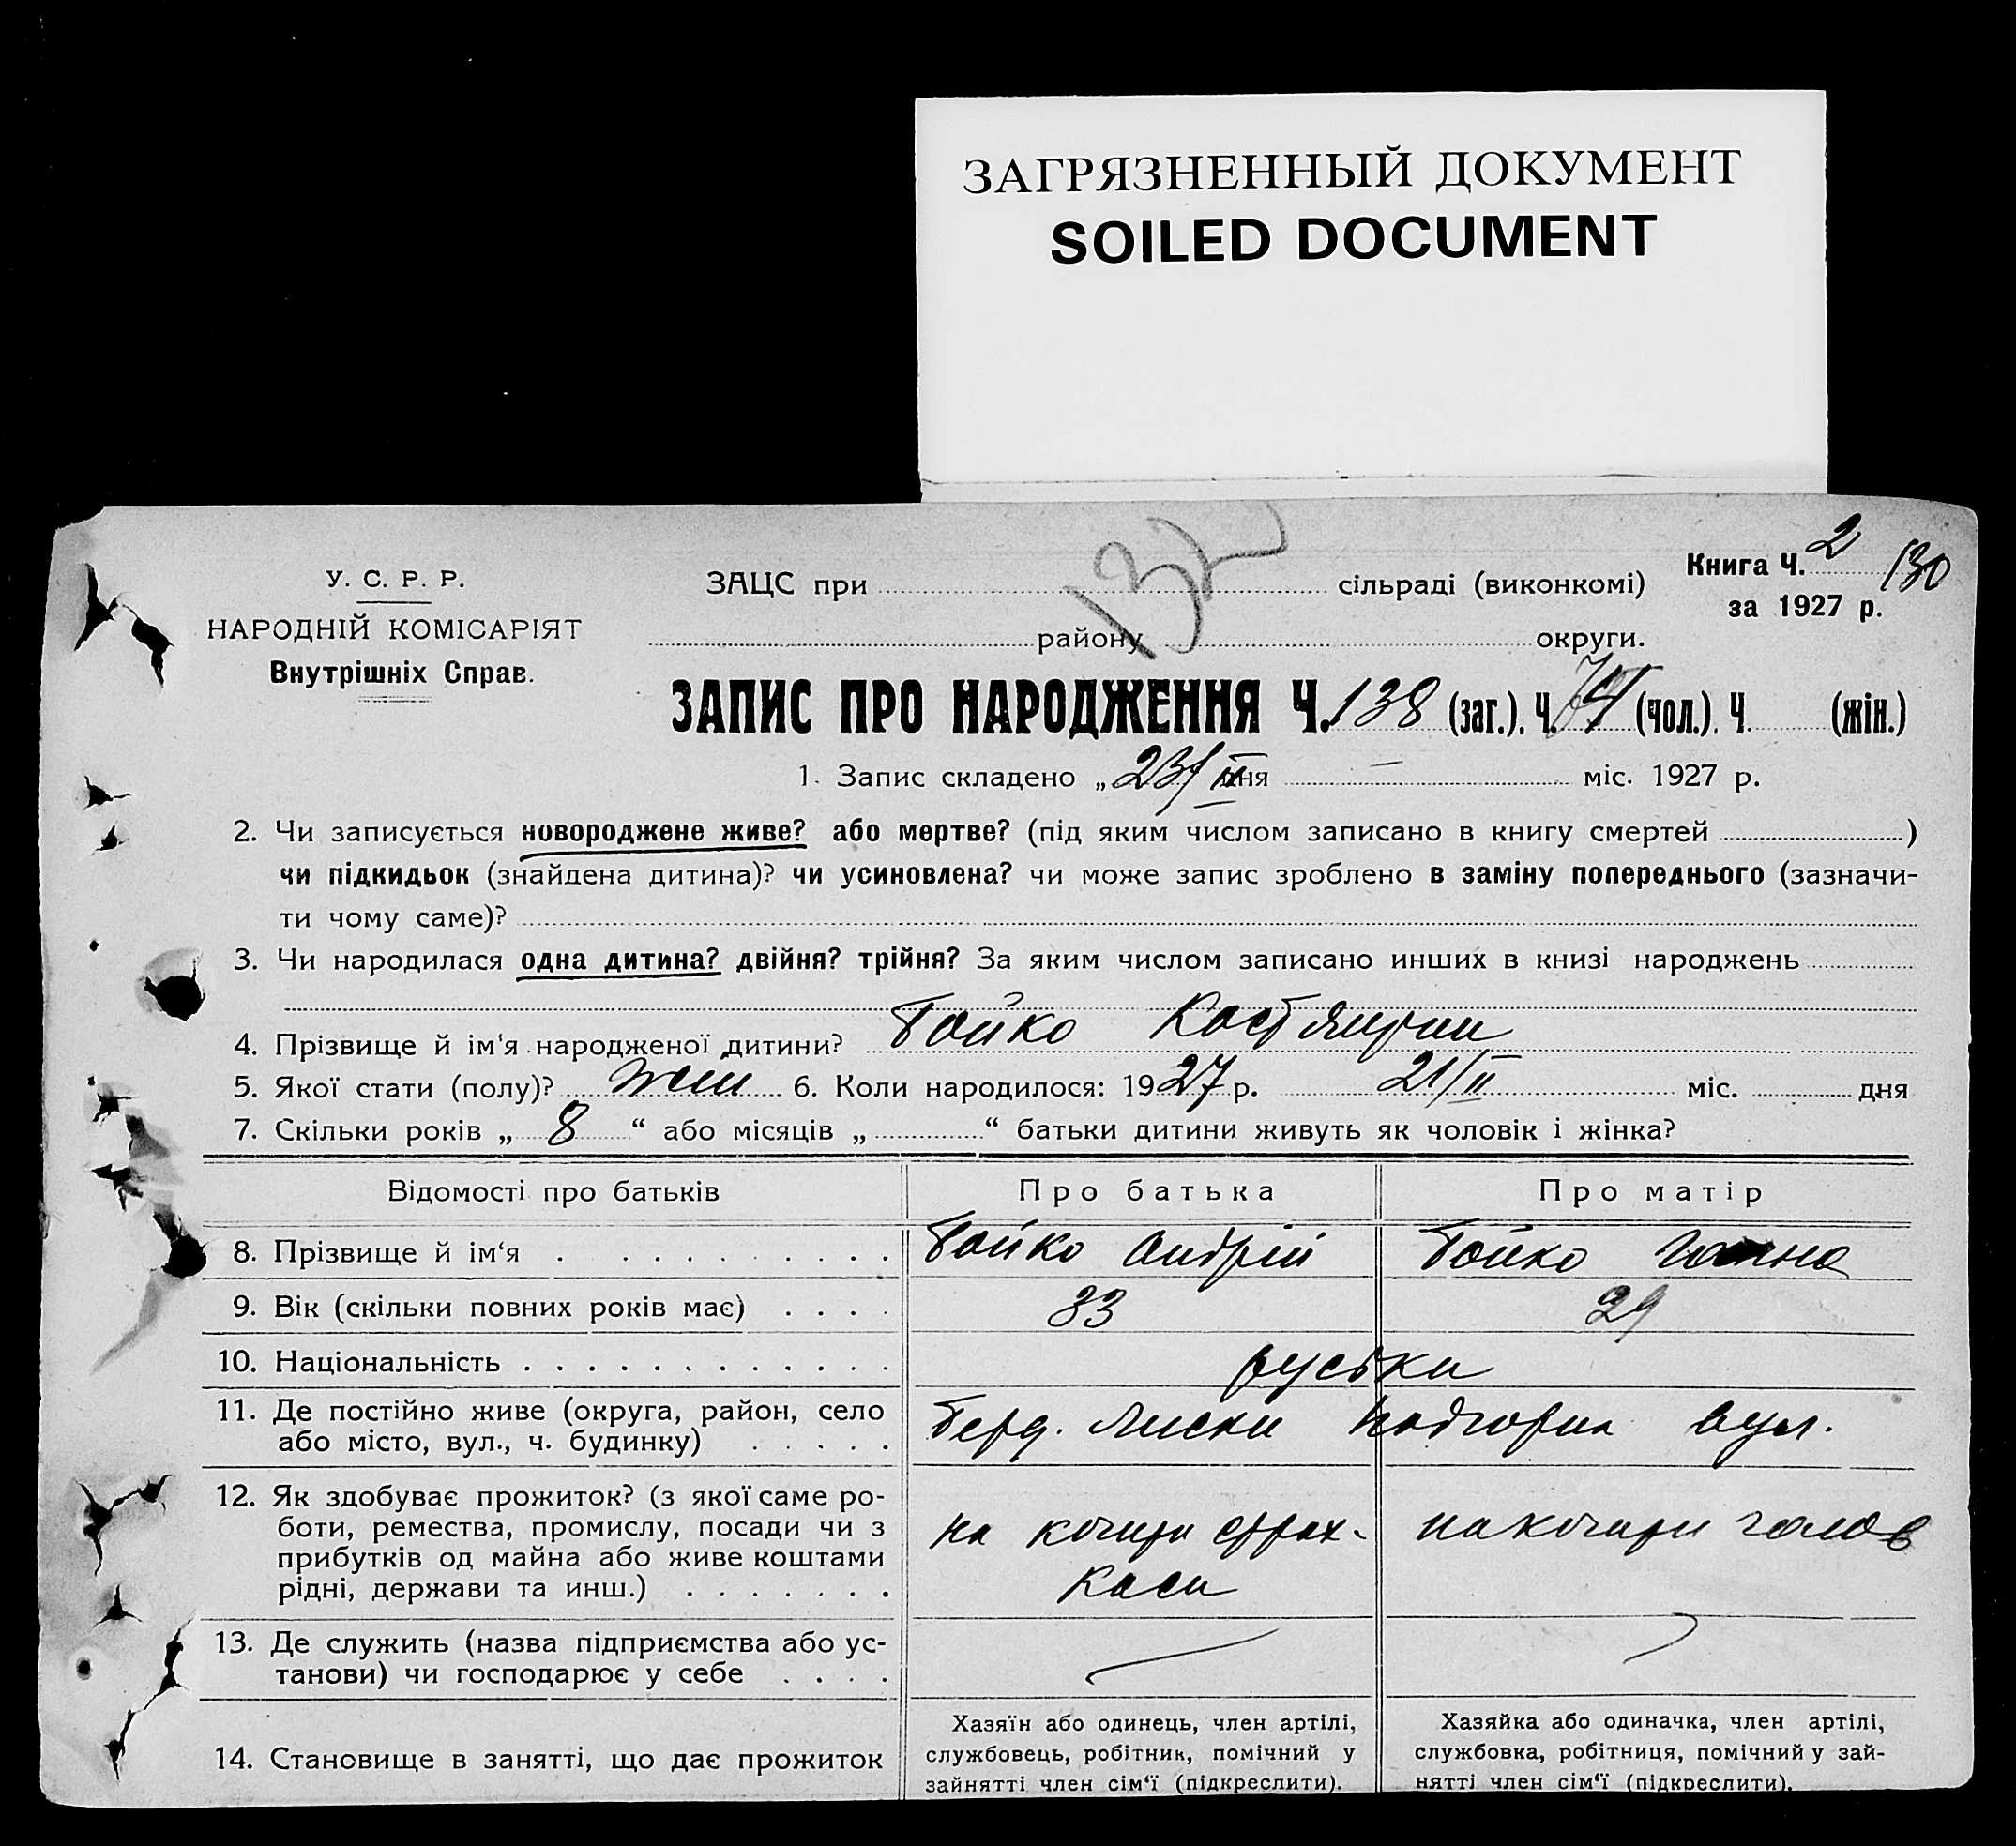 ЗАГРЯЗНЕННЫЙ ДОКУМЕНТ
SOILED DOCUMENT
132
Книга Ч. 2 130
за 1927 р.
У. С. Р. Р.
НАРОДНІЙ КОМІСАРІЯТ
Внутрішніх Справ.
ЗАЦС при сільраді (виконкомі)
району округи.
ЗАПИС ПРО НАРОДЖЕННЯ Ч. 138 (заг.). Ч. 74 (чол.). Ч. (жін.)
1. Запис складено „ 23/II дня — міс. 1927 р.
2. Чи записується новороджене живе? або мертве? (під яким числом записано в книгу смертей )
чи підкидьок (знайдена дитина)? чи усиновлена? чи може запис зроблено в заміну попереднього (зазначи-
ти чому саме)?
3. Чи народилася одна дитина? двійня? трійня? За яким числом записано инших в книзі народжень
4. Прізвище й ім'я народженої дитини? Бойко
5. Якої стати (полу)? 6. Коли народилося: 1927 р. 21/II міс. дня
7. Скільки років „ 8 “ або місяців „ “ батьки дитини живуть як чоловік і жінка?
Відомості про батьків Про батька Про матір
8. Прізвище й ім‘я Бойко Андрій Бойко Ганна
9. Вік (скільки повних років має) 33 29
10. Національність руськи
11. Де постійно живе (округа, район, село
або місто, вул., ч. будинку)
Берд. Лиски вул.
12. Як здобуває прожиток? (з якої саме ро-
боти, ремества, промислу, посади чи з
прибутків од майна або живе коштами
рідні, держави та инш.)
на кошти страх-
каси
на кошти голов
13. Де служить (назва підприємства або ус-
танови) чи господарює у себе
14. Становище в занятті, що дає прожиток
Хазяїн або одинець, член артілі,
службовець, робітник, помічний у
зайнятті член сім‘ї (підкреслити).
Хазяйка або одиначка, член артілі,
службовка, робітниця, помічний у зай-
нятті член сім‘ї (підкреслити).